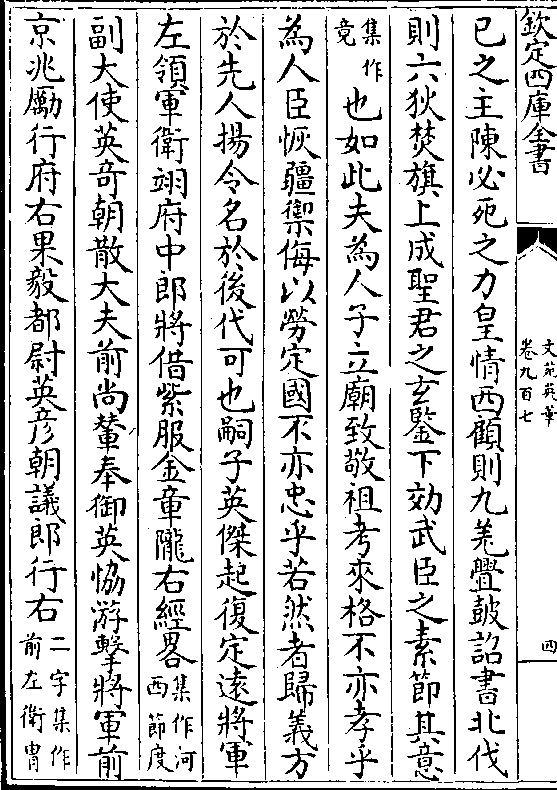 欽定四庫全書
文苑英華
卷九百七
四
已之主陳必死之力皇情西顧則九羌舋皷詔書北伐
則六狄焚旗上成聖君之玄鑒下効武臣之素節其意
集作竟也如此夫為人子立廟致敬祖考來格不亦孝乎
為人臣恢疆禦侮以勞定國不亦忠乎若然者歸義方
於先人揚令名於後代可也嗣子英傑起復定遠將軍
左領軍衛翊府中郎將借紫服金章隴右經畧集作河西節度
副大使英奇朝散大夫前尚輦奉御英恊游擊將軍前
京兆勵行府右果毅都尉英彦朝議郎行右二字集作前左衛胄